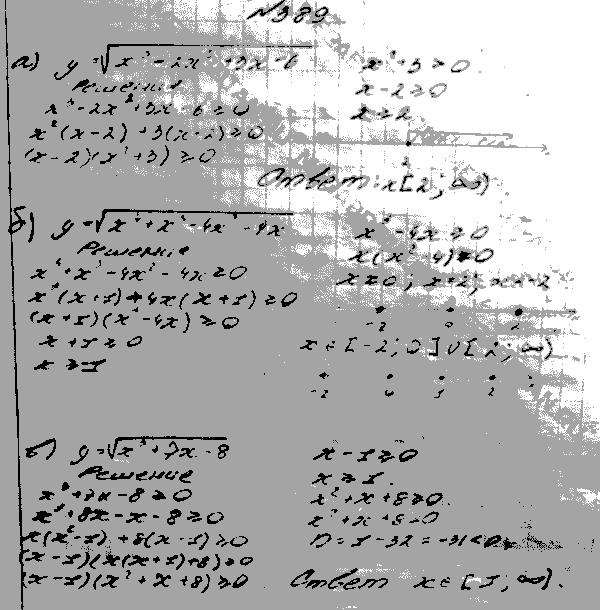 №389
а) y=√x³-2x²+3x-6
Решение
x³-2x²+3x-6≥0
x²(x-2)+3(x-2)≥0
(x-2)(x²+3)≥0
x²+3>0
x-2≥0
x≥2
2
Ответ: x[2;∞)
б) y=√x⁴+x³-4x²-4x
Решение
x⁴+x³-4x²-4x≥0
x³(x+1)-4x(x+1)≥0
(x+1)(x³-4x)≥0
x+1≥0
x≥-1
x³-4x≥0
x(x²-4)≥0
x≥0; x+2; x-2
-2 0 2
x∈[-2;0]∪[2;∞)
y=√x³+7x-8
Решение
x³+7x-8≥0
x³+8x-x-8≥0
x(x²-1)+8(x-1)≥0
(x-1)(x(x+1)+8)≥0
(x-1)(x²+x+8)≥0
x-1≥0
x≥1.
x²+x+8≥0.
x²+x+8=0
D=1-32=-31<0
Ответ x∈[1;∞).